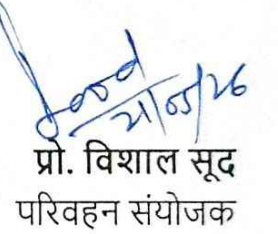 Sood
21/05/26
प्रो. विशाल सूद
परिवहन संयोजक